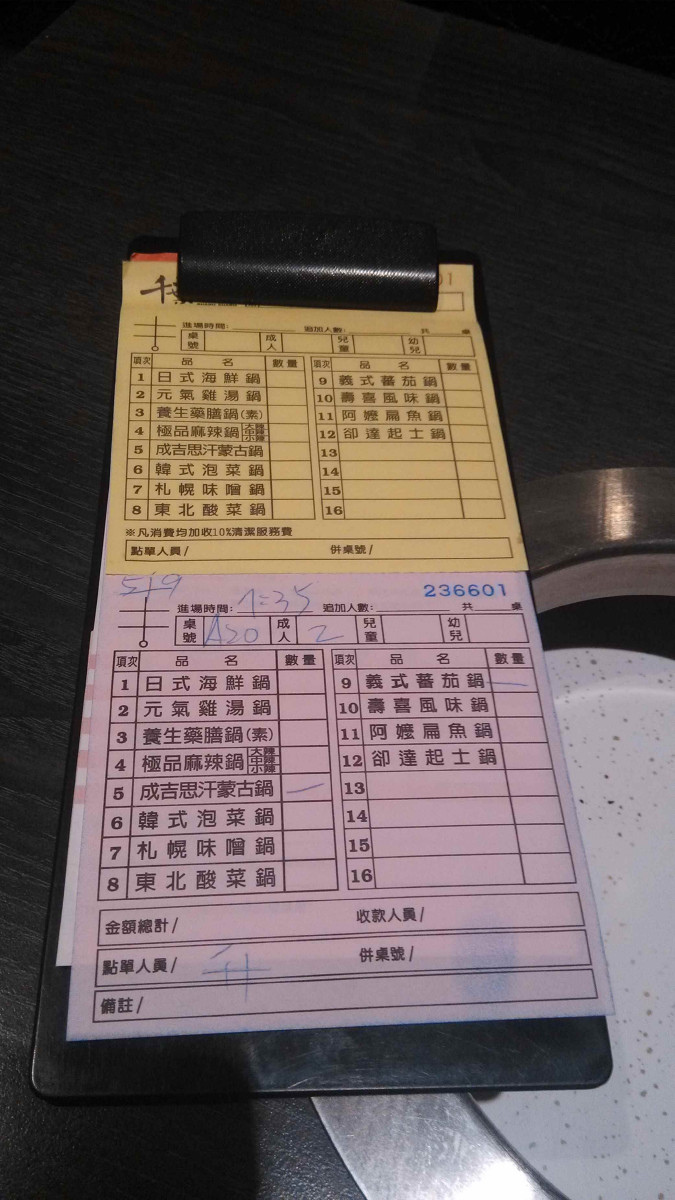 千葉
進場時間: 追加人數: 共 桌
桌號 成人 兒童 幼兒
項次 品名 數量 項次 品名 數量
1 日式海鮮鍋 9 義式蕃茄鍋
2 元氣雞湯鍋 10 壽喜風味鍋
3 養生藥膳鍋(素) 11 阿嬤扁魚鍋
4 極品麻辣鍋 大辣 中辣 小辣 12 卻達起士鍋
5 成吉思汗蒙古鍋 13
6 韓式泡菜鍋 14
7 札幌味噌鍋 15
8 東北酸菜鍋 16
※凡消費均加收10%清潔服務費
點單人員/ 併桌號/
519 236601
進場時間: 1:35 追加人數: 共 桌
桌號 A20 成人 2 兒童 幼兒
項次 品名 數量 項次 品名 數量
1 日式海鮮鍋 9 義式蕃茄鍋 一
2 元氣雞湯鍋 10 壽喜風味鍋
3 養生藥膳鍋(素) 11 阿嬤扁魚鍋
4 極品麻辣鍋 大辣 中辣 小辣 12 卻達起士鍋
5 成吉思汗蒙古鍋 一 13
6 韓式泡菜鍋 14
7 札幌味噌鍋 15
8 東北酸菜鍋 16
金額總計/ 收款人員/
點單人員/ 併桌號/
備註/